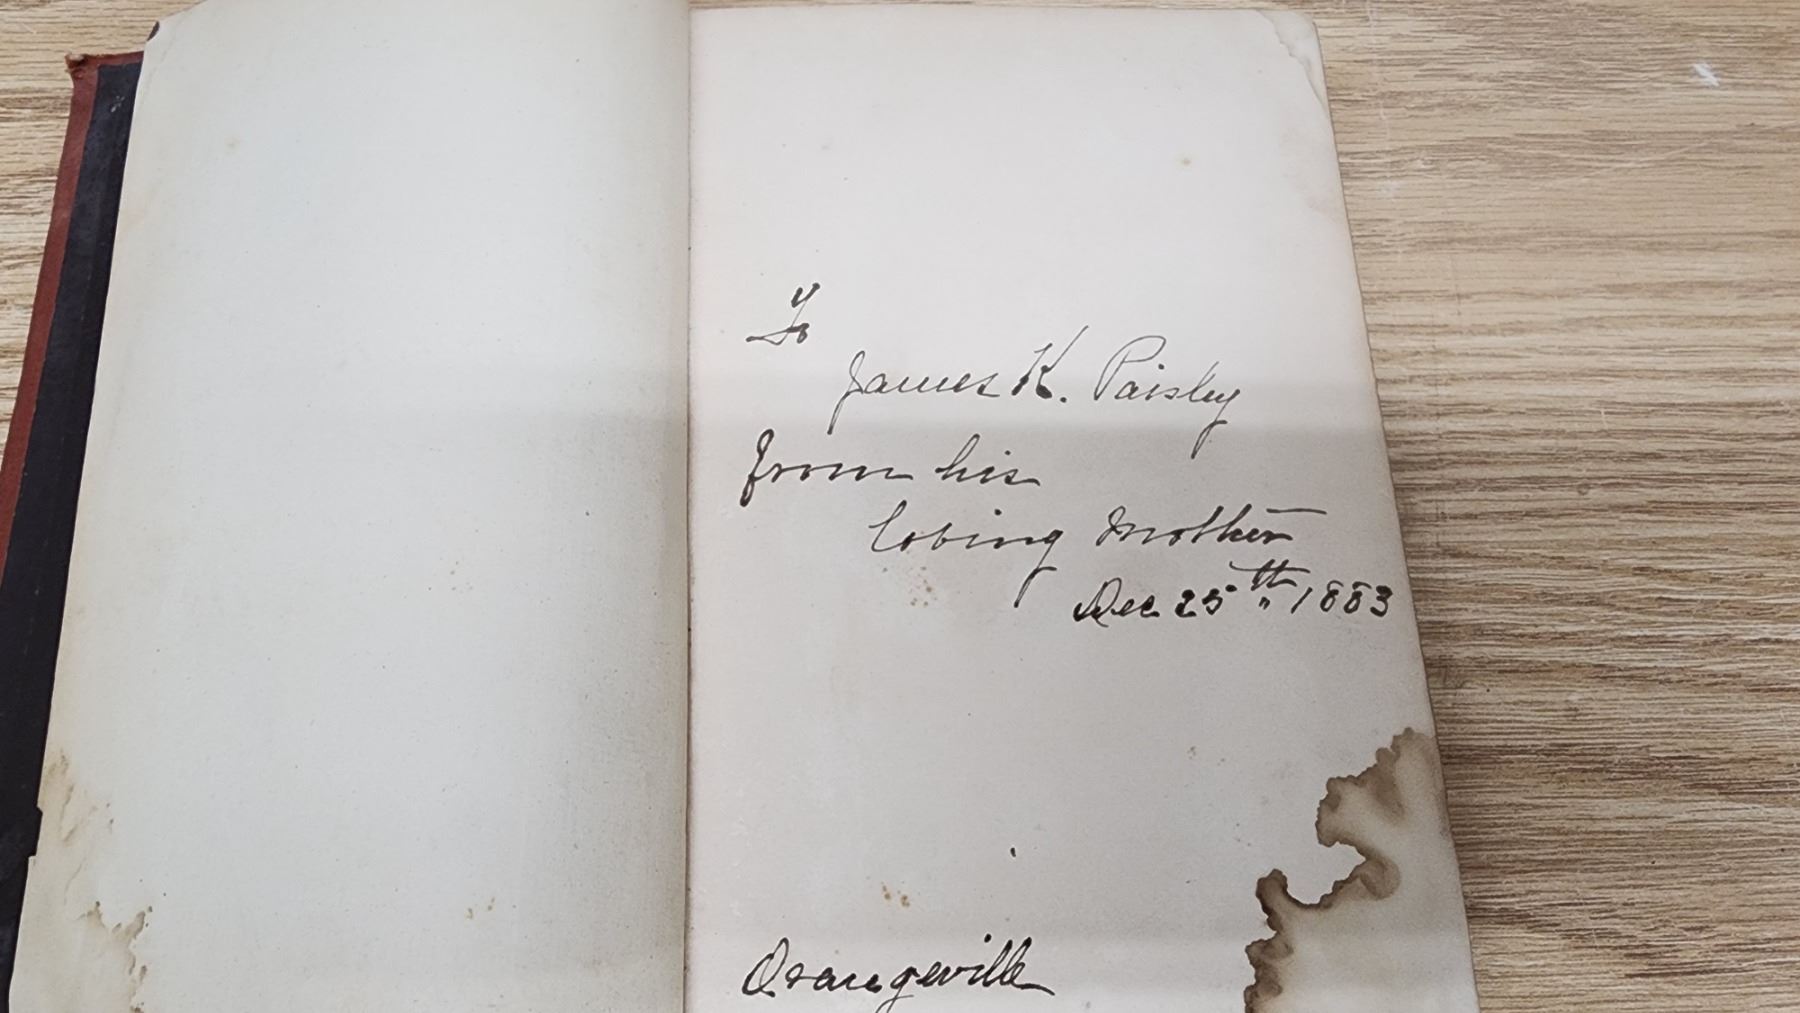 To
James K. Paisley
from his
loving Mother
Dec 25th 1883
Orangeville